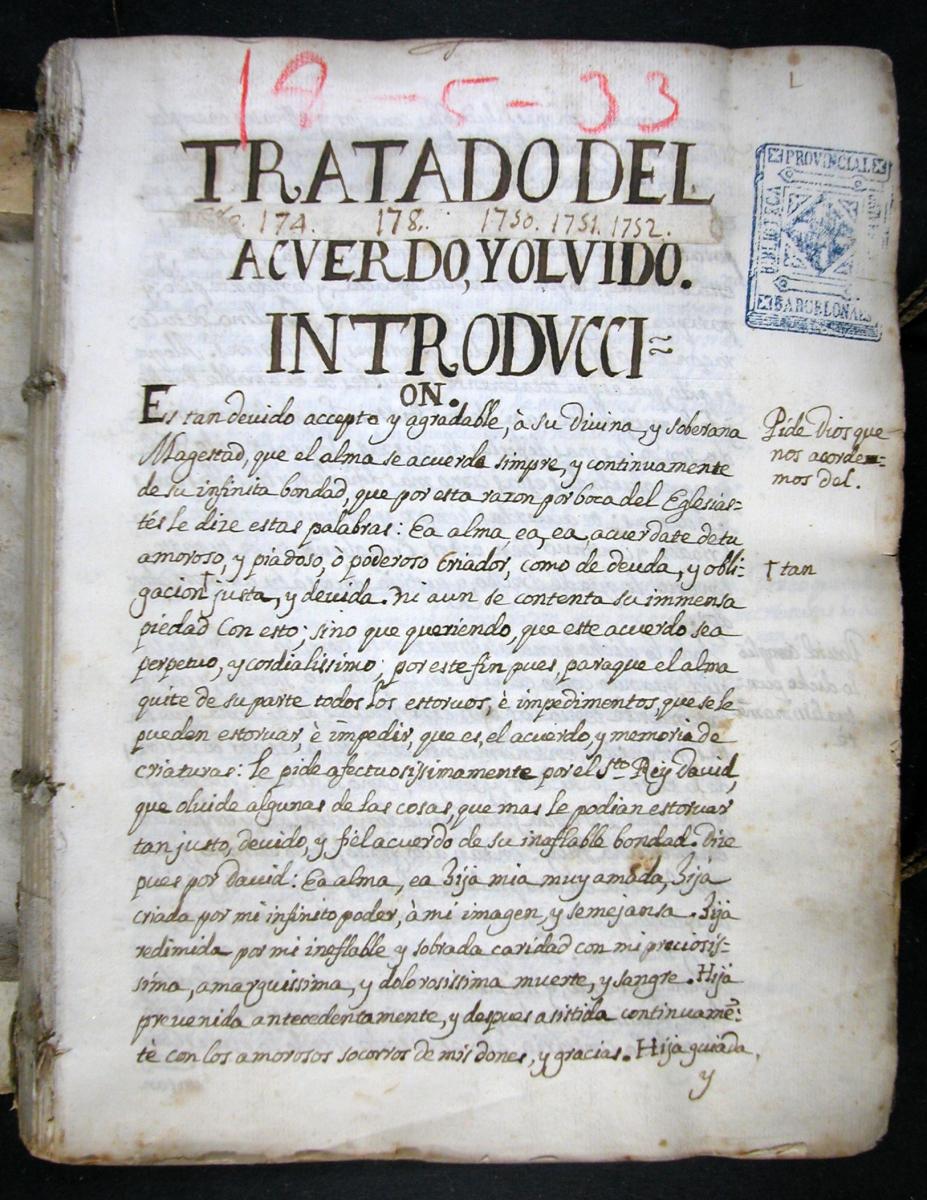 19-5-33
L
TRATADO DEL
174. 178. 1750. 1751. 1752.
ACVERDO, Y OLVIDO.
INTRODVCCI=
ON.
PROVINCIAL
BIBLIOTECA
BARCELONA
Es tan devido accepto y agradable, à su Divina, y soberana
Magestad, que el alma se acuerde simpre, y continuamente
de su infinita bondad, que por esta razon por boca del Eglesias=
tés le dize estas palabras: Ea alma, ea, ea, acuerdate de tu
amoroso, y piadoso, ò poderoso Criador, como de deuda, y obli=
gacion † justa, y devida. Ni aun se contenta su immensa
piedad con esto; sino que queriendo, que este acuerdo sea
perpetuo, y cordialissimo; por este fin pues, paraque el alma
quite de su parte todos los estorvos, è impedimentos, que se le
pueden estorvar, è impedir, que es, el acuerdo, y memoria de
criaturas: le pide afectuosissimamente por el Sto Rey David,
que olvide algunas de las cosas, que mas le podian estorvar
tan justo, devido, y fiel acuerdo de su ineflable bondad. Dize
pues por David: Ea alma, ea Hija mia muy amada, Hija
criada por mi infinito poder, à mi imagen, y semejansa. Hija
redimida por mi ineflable y sobrada caridad con mi preciosis=
sima, amarguissima, y dolorosissima muerte, y sangre. Hija
prevenida antecedentamente, y despues asistida continuamē=
te con los amorosos socorros de mis dones, y gracias. Hija guiada,
y
Pide Dios que
nos acorde=
mos del.
† tan